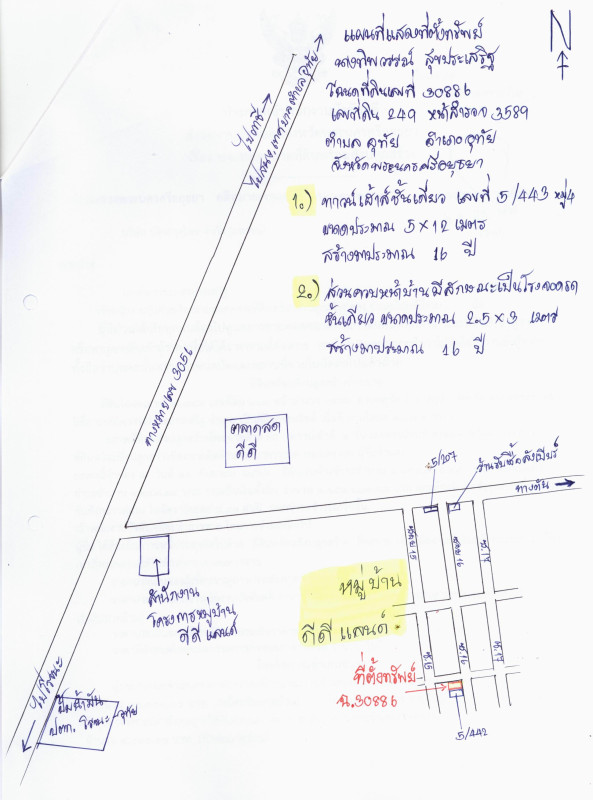 แผนที่แสดงที่ตั้งทรัพย์
นางทิพวรรณ์ สุขประเสริฐ
โฉนดที่ดินเลขที่ 30886
เลขที่ดิน 249 หน้าสำรวจ 3589
ตำบล อุทัย อำเภอ อุทัย
จังหวัดพระนครศรีอยุธยา
N
1.) ทาวน์เฮ้าส์ชั้นเดียว เลขที่ 5/443 หมู่4
ขนาดประมาณ 5 x 12 เมตร
สร้างมาประมาณ 16 ปี
2.) ส่วนควบหน้าบ้านมีลักษณะเป็นโรงจอดรถ
ชั้นเดียว ขนาดประมาณ 2.5 x 3 เมตร
สร้างมาประมาณ 16 ปี
ไปสนง.เทศบาลตำบลอุทัย
ทางหลวงเลข 3056
ตลาดสด
ดีดี
5/207
ทางตัน
ซอย 15
ซอย 16
ซ.17
สำนักงาน
โครงการหมู่บ้าน
ดีดี แลนด์
หมู่บ้าน
ดีดี แลนด์
ซ.15
ซ.16
ซ.17
ที่ตั้งทรัพย์
ฉ.30886
5/442
ไปโรจนะ
ปั๊มน้ำมัน
ปตท. โรจนะ-อุทัย